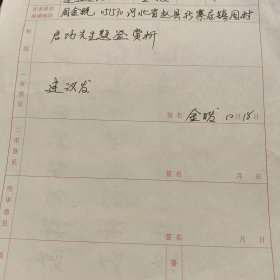 作者姓名
邮编地址
周金魁 051530 河北省赵县新寨店镇周村
标题
启功先生题签赏析
一审意见
建议发
签名 10月18日
二审意见
签名 月 日
终审意见
签名 月 日
备